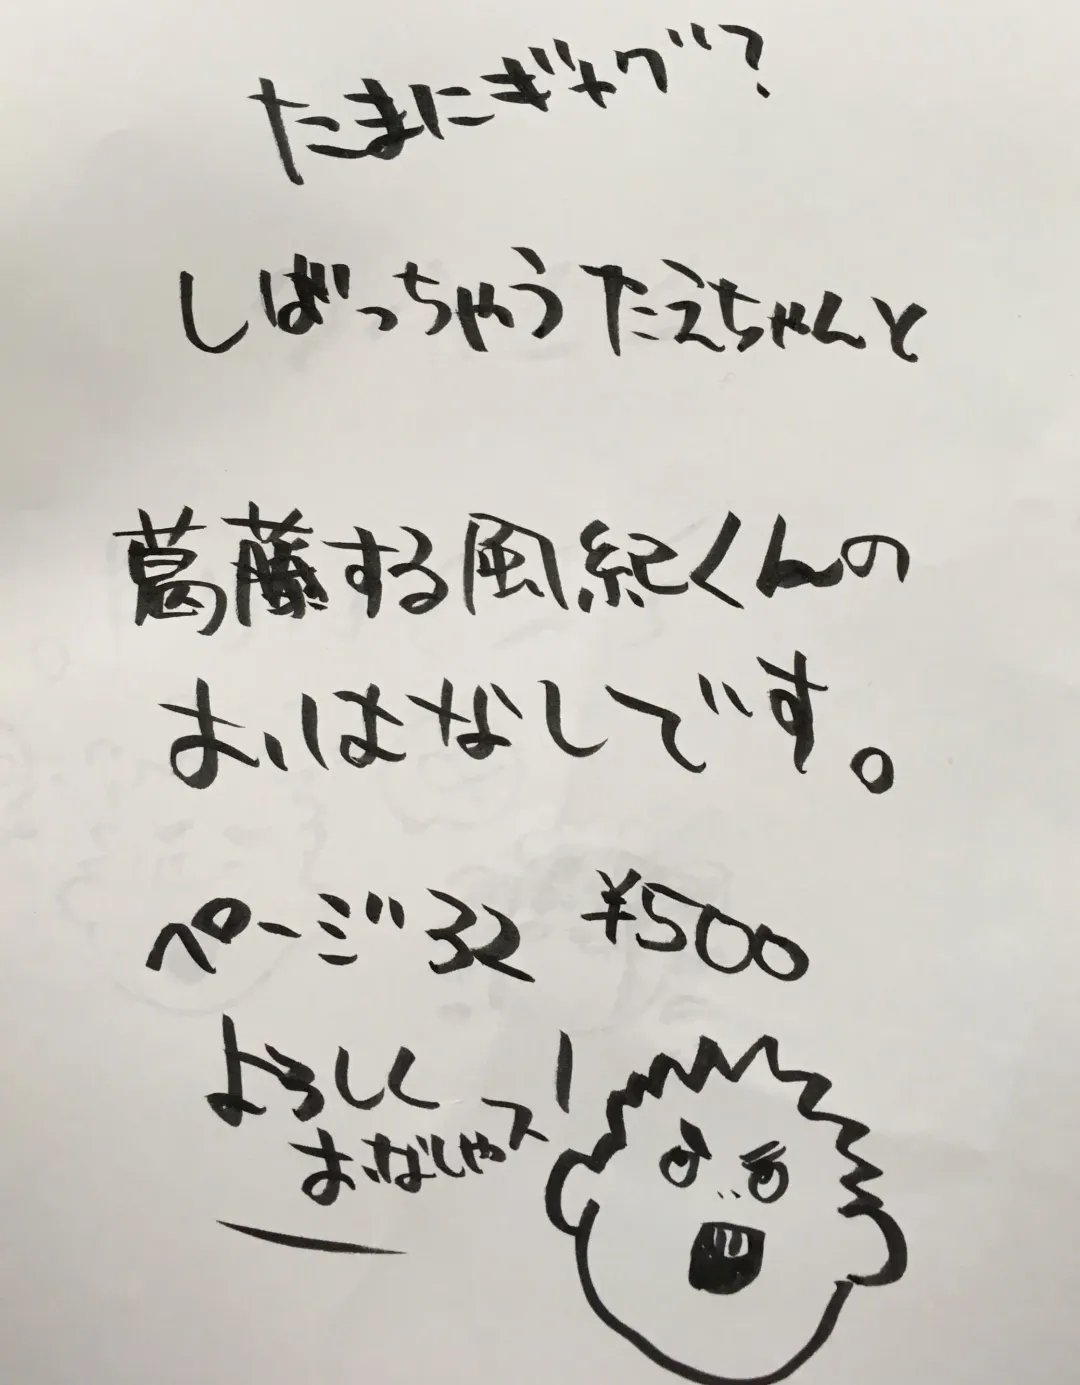 たまにギャグ?
しばっちゃうたえちゃんと
葛藤する風紀くんの
おはなしです。
ページ32 ¥500
よろしく
おなしゃスー